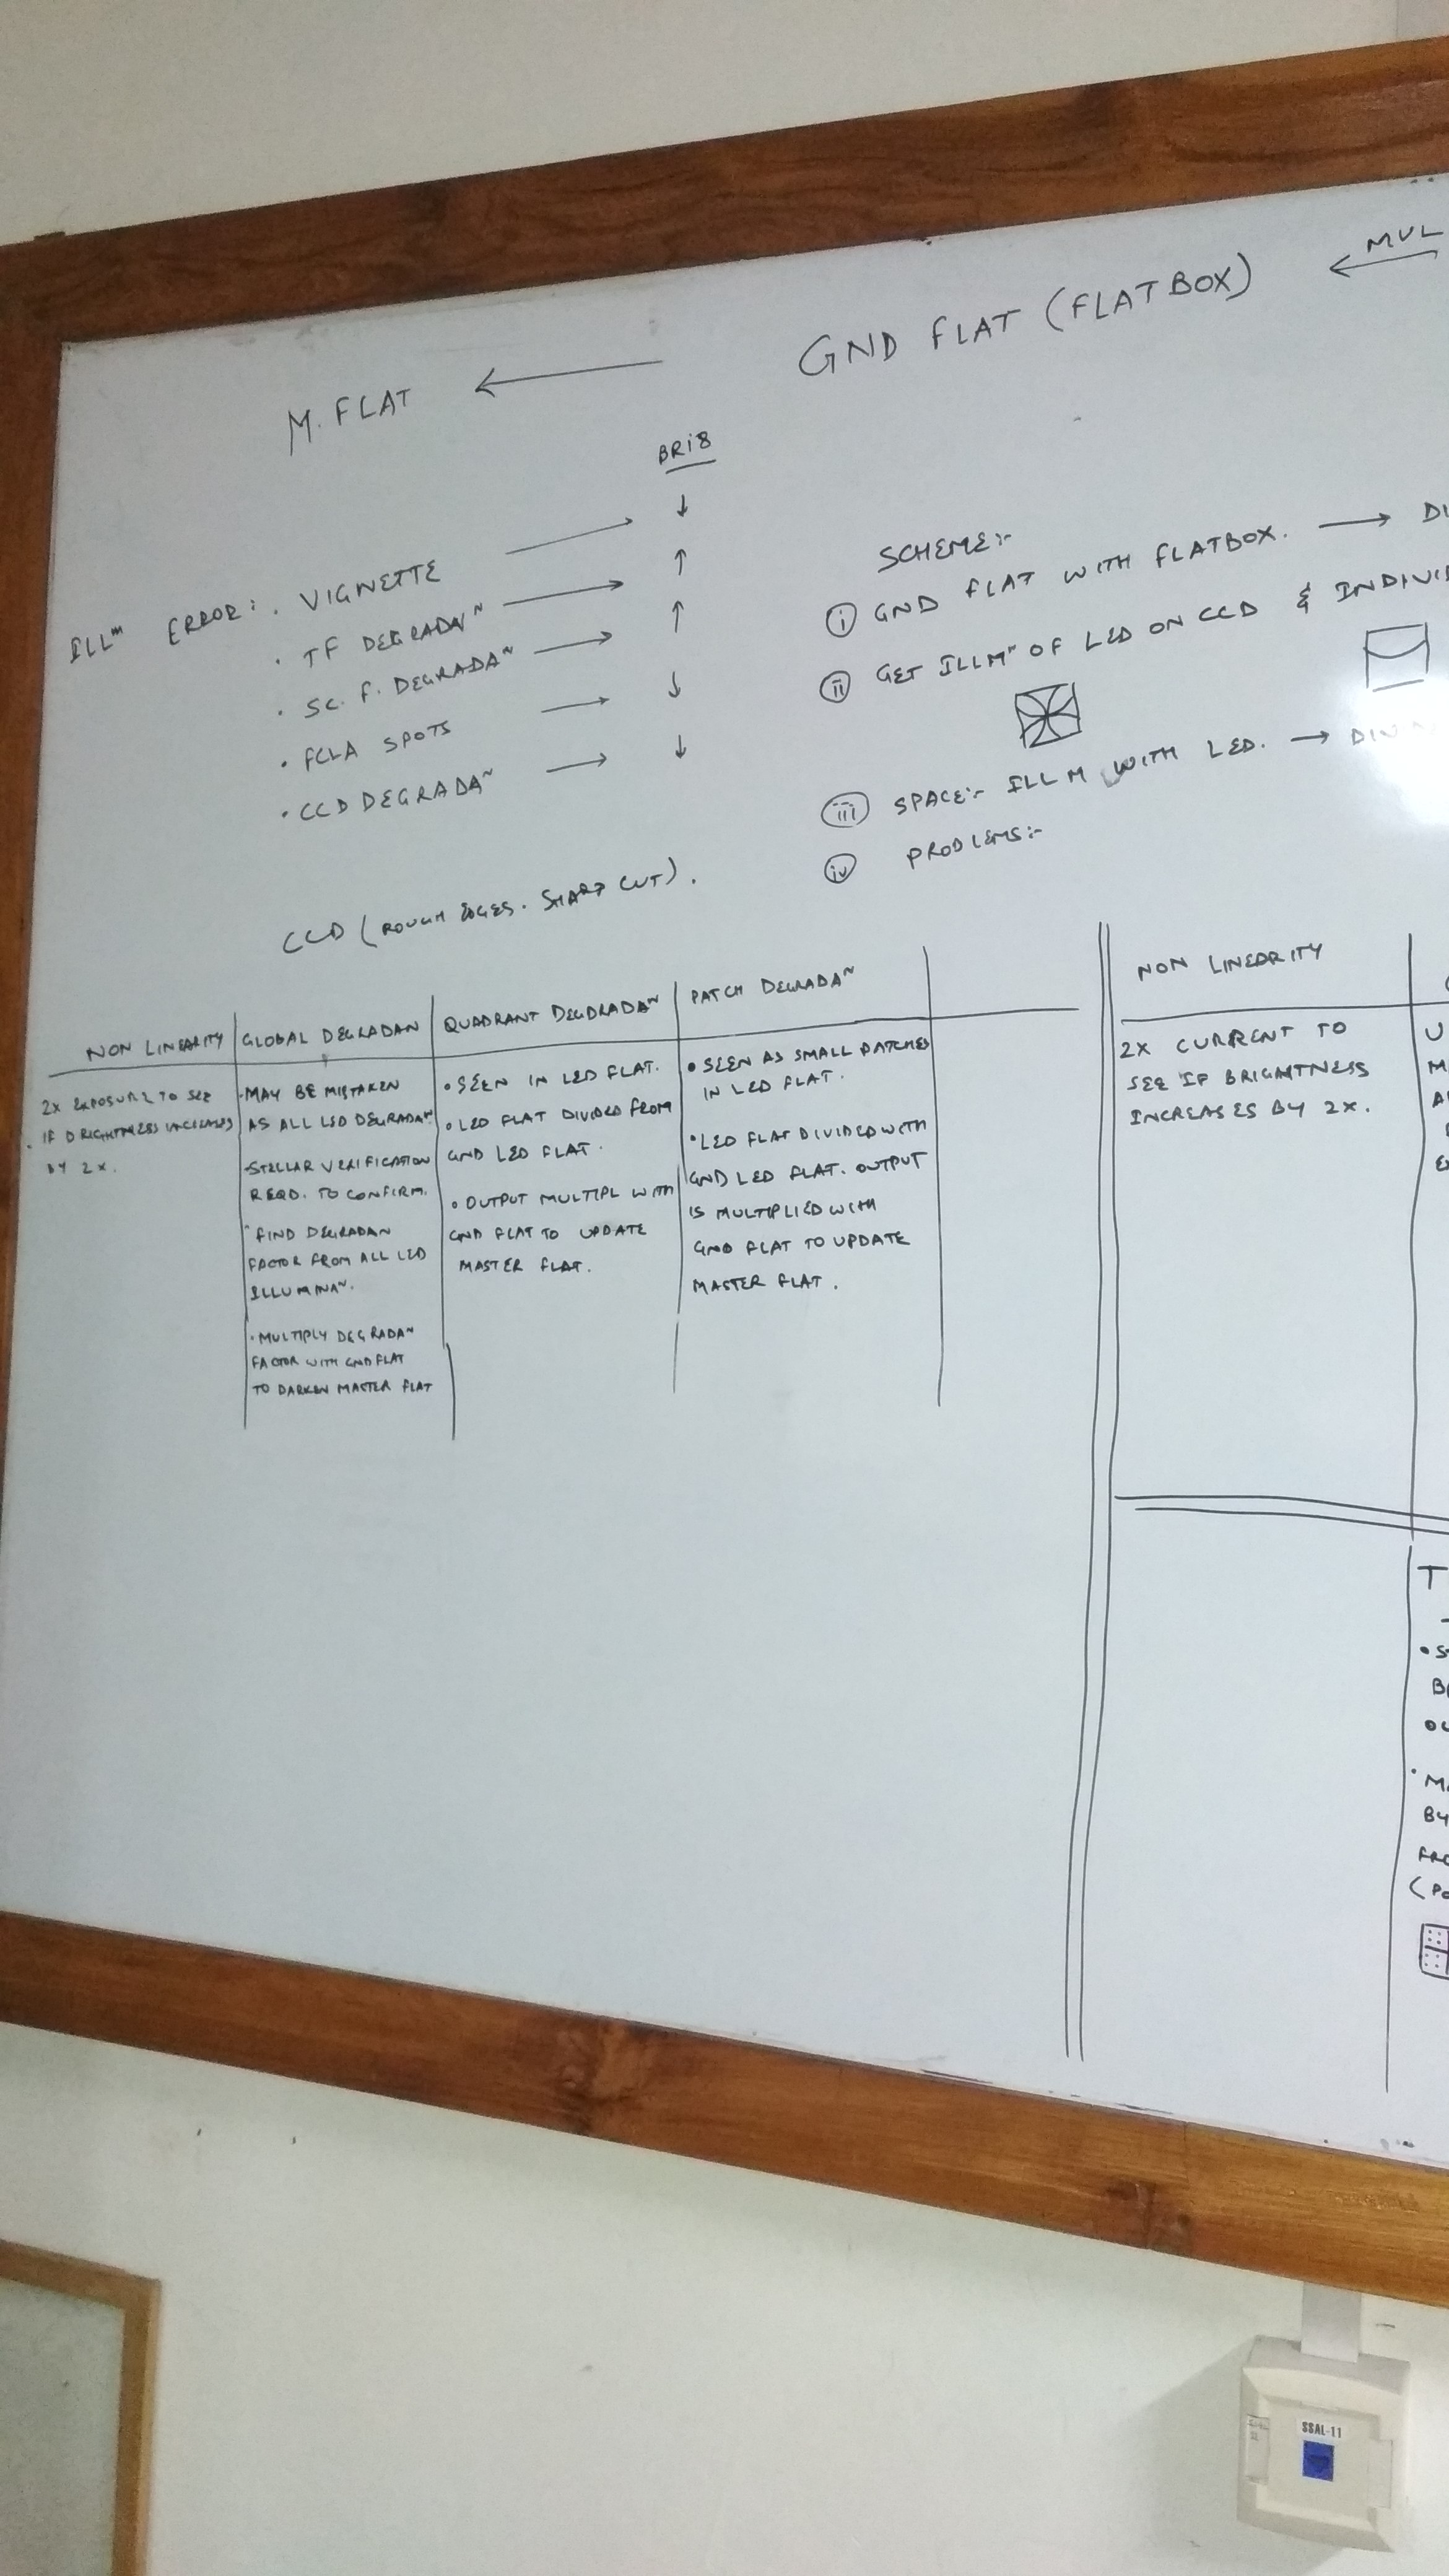 M. FLAT ← GND FLAT (FLATBOX) ← MUL
BRi8
ILLᵐ ERROR: · VIGNETTE → ↓
· TF DEGRADAᴺ → ↑
· SC. F. DEGRADAᴺ → ↑
· FCLA SPOTS → ↓
· CCD DEGRADAᴺ → ↓
CCD (ROUGH EDGES. SHARP CUT).
SCHEME:-
(i) GND FLAT WITH FLATBOX. →
(ii) GET ILLMⁿ OF LED ON CCD & INDIVI
(iii) SPACE:- ILLM WITH LED. →
(iv) PROBLEMS:-
NON LINEARITY
2X EXPOSURE TO SEE
IF BRIGHTNESS INCREASES
BY 2X.
GLOBAL DEGRADAN
·MAY BE MISTAKEN
AS ALL LED DEGRADAᴺ
·STELLAR VERIFICATION
REQD. TO CONFIRM.
·FIND DEGRADAN
FACTOR FROM ALL LED
ILLUMINAᴺ.
·MULTIPLY DEGRADAᴺ
FACTOR WITH GND FLAT
TO DARKEN MASTER FLAT
QUADRANT DEGDRADAᴺ
·SEEN IN LED FLAT.
·LED FLAT DIVIDED FROM
GND LED FLAT.
·OUTPUT MULTIPL WITH
GND FLAT TO UPDATE
MASTER FLAT.
PATCH DEGRADAᴺ
·SEEN AS SMALL PATCHES
IN LED FLAT.
·LED FLAT DIVIDED WITH
GND LED FLAT. OUTPUT
IS MULTIPLIED WITH
GND FLAT TO UPDATE
MASTER FLAT.
NON LINEARITY
2X CURRENT TO
SEE IF BRIGHTNESS
INCREASES BY 2X.
SSAL-11